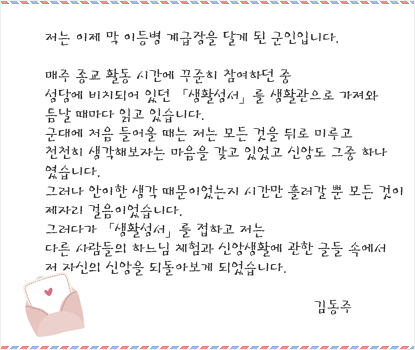 저는 이제 막 이등병 계급장을 달게 된 군인입니다.
매주 종교 활동 시간에 꾸준히 참여하던 중
성당에 비치되어 있던 「생활성서」를 생활관으로 가져와
틈날 때마다 읽고 있습니다.
군대에 처음 들어올 때는 저는 모든 것을 뒤로 미루고
천천히 생각해보자는 마음을 갖고 있었고 신앙도 그중 하나
였습니다.
그러나 안이한 생각 때문이었는지 시간만 흘러갈 뿐 모든 것이
제자리 걸음이었습니다.
그러다가 「생활성서」를 접하고 저는
다른 사람들의 하느님 체험과 신앙생활에 관한 글들 속에서
저 자신의 신앙을 되돌아보게 되었습니다.
김동주